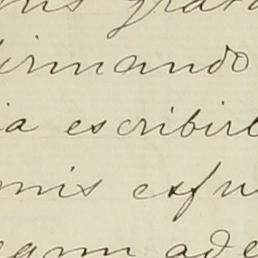 mis grat
firmando
ia escribirl
mis esfu
egun ade